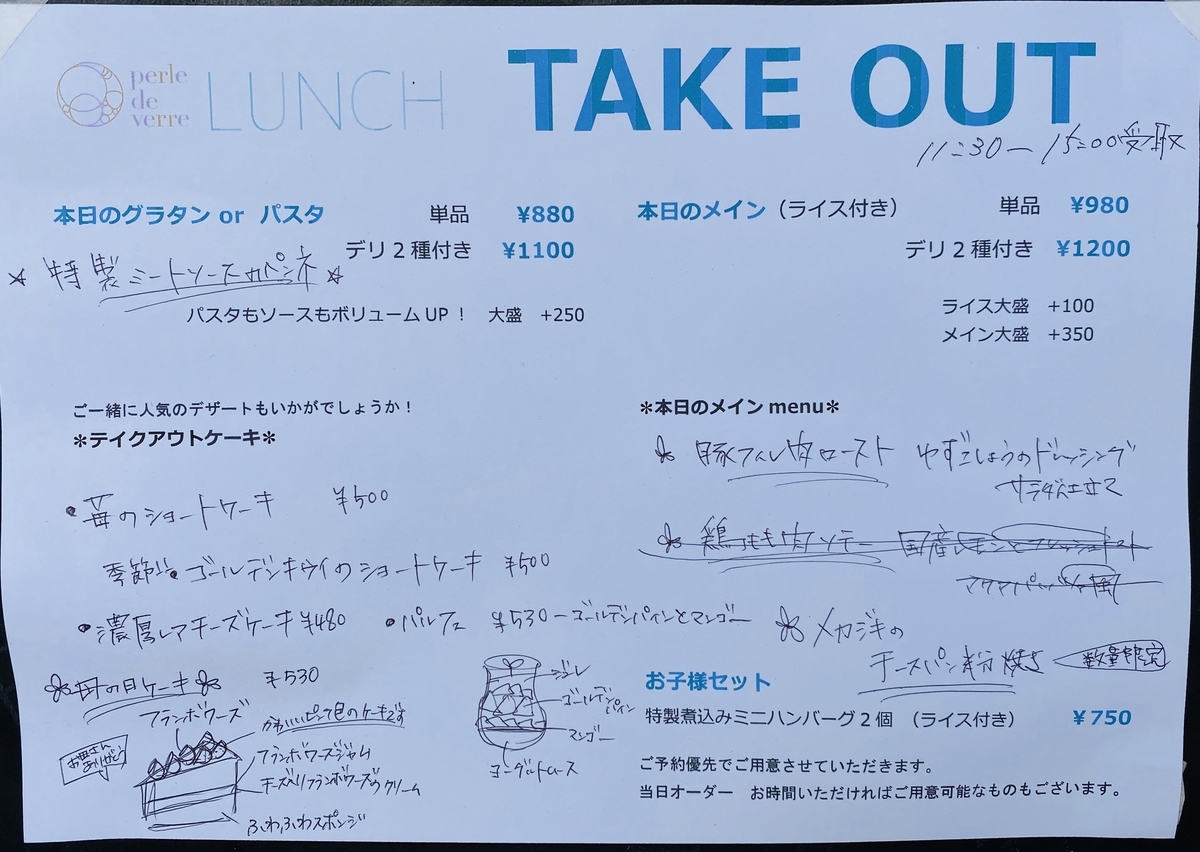 perle
de
verre
LUNCH
TAKE OUT
11:30ー15:00受取
本日のグラタン or パスタ 単品 ¥880
デリ２種付き ¥1100
☆ 特製ミートソースのペンネ ☆
パスタもソースもボリュームUP！ 大盛 +250
本日のメイン（ライス付き） 単品 ¥980
デリ２種付き ¥1200
ライス大盛 +100
メイン大盛 +350
ご一緒に人気のデザートもいかがでしょうか！
＊テイクアウトケーキ＊
・苺のショートケーキ ¥500
季節の ゴールデンキウイのショートケーキ ¥500
・濃厚レアチーズケーキ ¥480
・パルフェ ¥530ーゴールデンパインとマンゴー
母の日ケーキ ¥530
フランボワーズ
かわいいピンク色のケーキです
お母さん
ありがとう
フランボワーズジャム
チーズ入りフランボワーズのクリーム
ふわふわスポンジ
ジュレ
ゴールデン
パイン
マンゴー
ヨーグルトムース
＊本日のメインmenu＊
豚フィレ肉ロースト ゆずこしょうのドレッシング
サラダ仕立て
鶏もも肉ソテー 国産レモンとフレッシュトマト
アクアパッツァ風
メカジキの
チーズパン粉焼き 数量限定
お子様セット
特製煮込みミニハンバーグ２個 （ライス付き） ¥750
ご予約優先でご用意させていただきます。
当日オーダー お時間いただければご用意可能なものもございます。